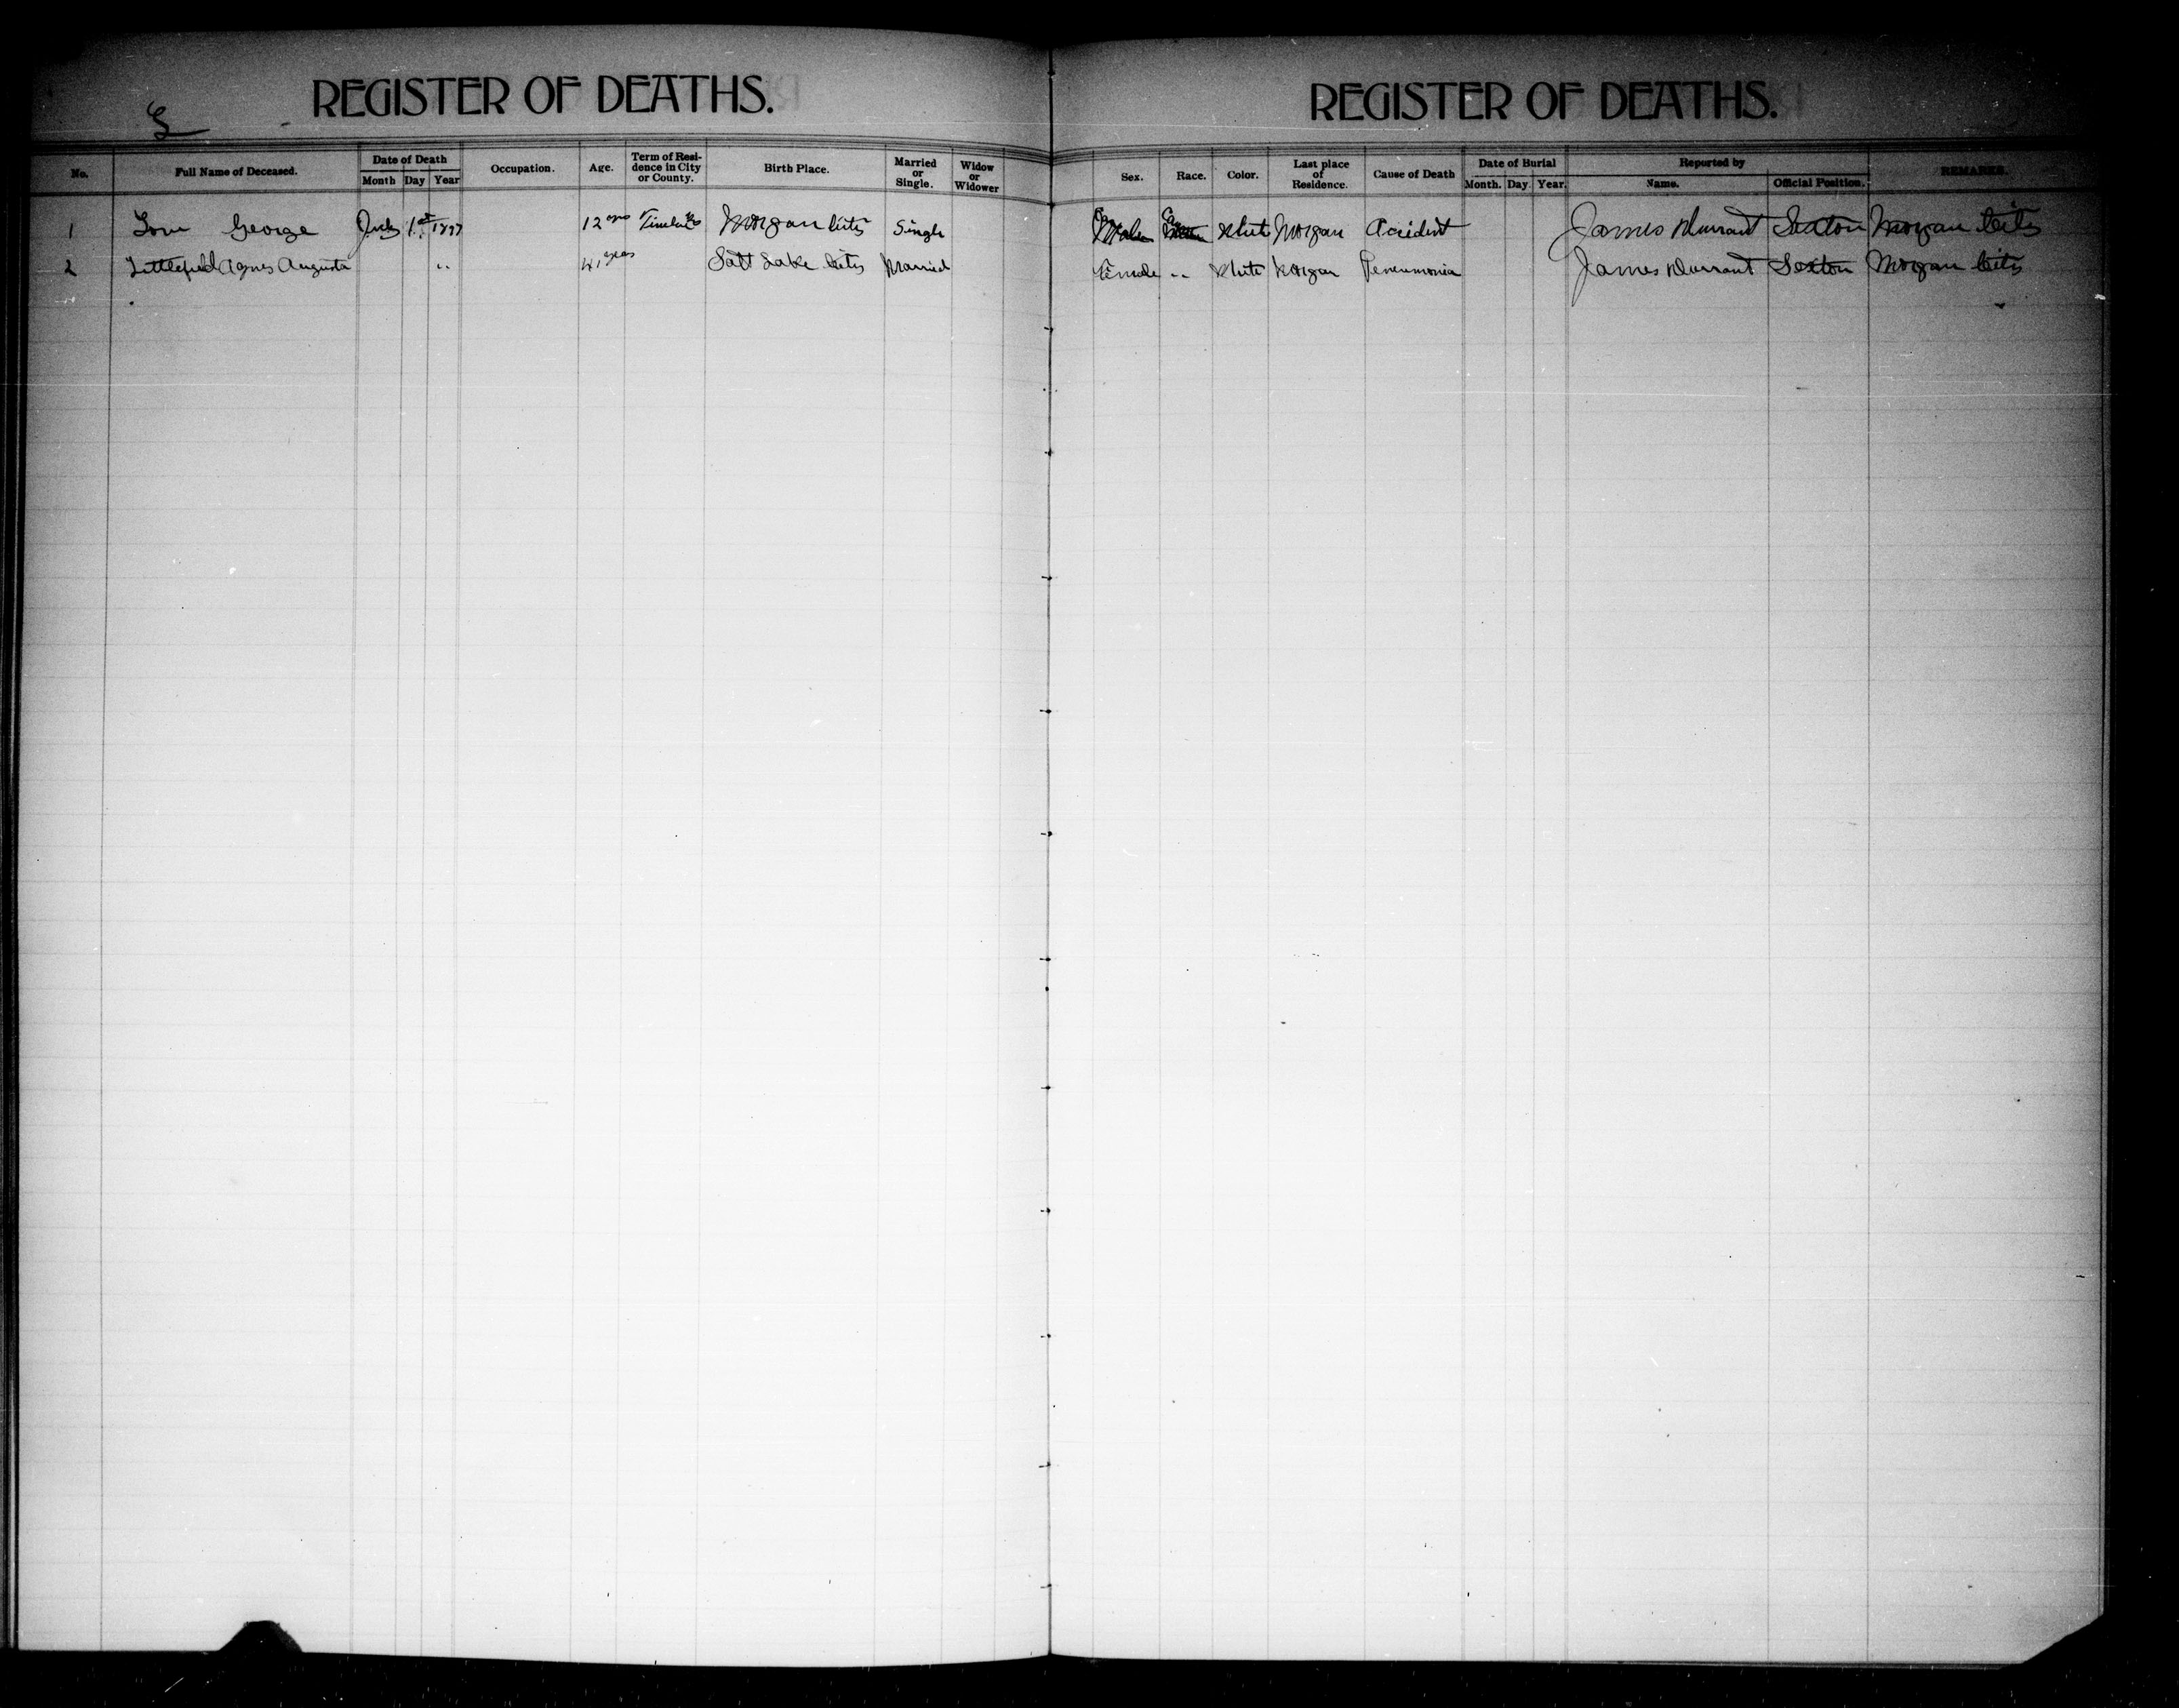 REGISTER OF DEATHS.
REGISTER OF DEATHS.
L
No. Full Name of Deceased. Date of Death Month Day Year Occupation. Age. Term of Residence in City or County. Birth Place. Married or Single. Widow or Widower Sex. Race. Color. Last place of Residence. Cause of Death Date of Burial Month. Day. Year. Reported by Name. Official Position. REMARKS.
1 Love George July 1st 12 Morgan City Single Male White Morgan Accident James Durrant Sexton Morgan City
2 Littlefield Agnes Augusta " 41 years Salt Lake City Married Female " White Morgan Peneumonia James Durrant Sexton Morgan City